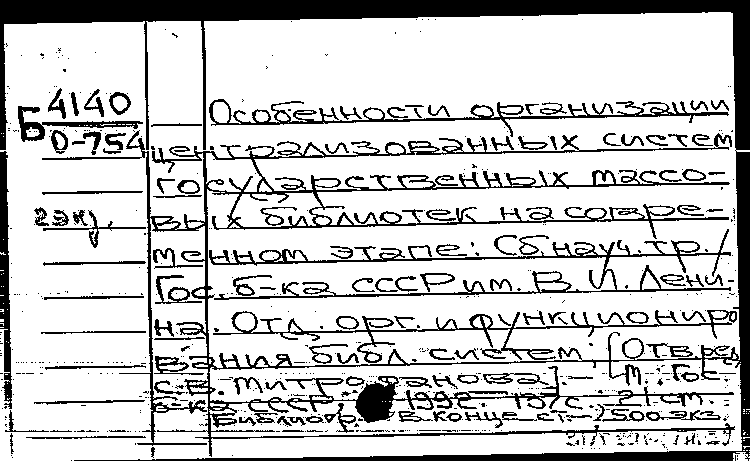 Б 4140
О-754
2 экз.
Особенности организации
централизованных систем
государственных массо-
вых библиотек на совре-
менном этапе: Сб. науч. тр. /
Гос. б-ка СССР им. В. И. Лени-
на. Отд. орг. и функциониро
вания библ. систем; [Отв. ред.
С.В. Митрофанова]. - М.: Гос.
б-ка СССР, 1992. 157с. 21 см.
Библиогр. в конце ст. 500 экз.